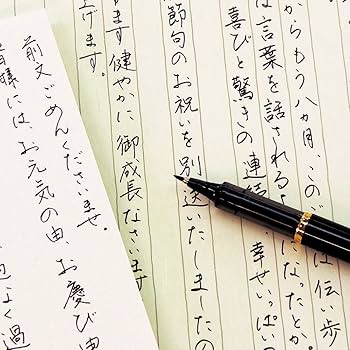 からもう八カ月、この は伝い歩
は言葉を話されるよ になったとか。
喜びと驚きの連続 幸せいっぱいの
節句のお祝いを別送いたしましたの
ます 健やかに 御成長なさいます
上げます。
前文ごめんくださいませ。
皆様には、お元気の由、お慶び申
よく過